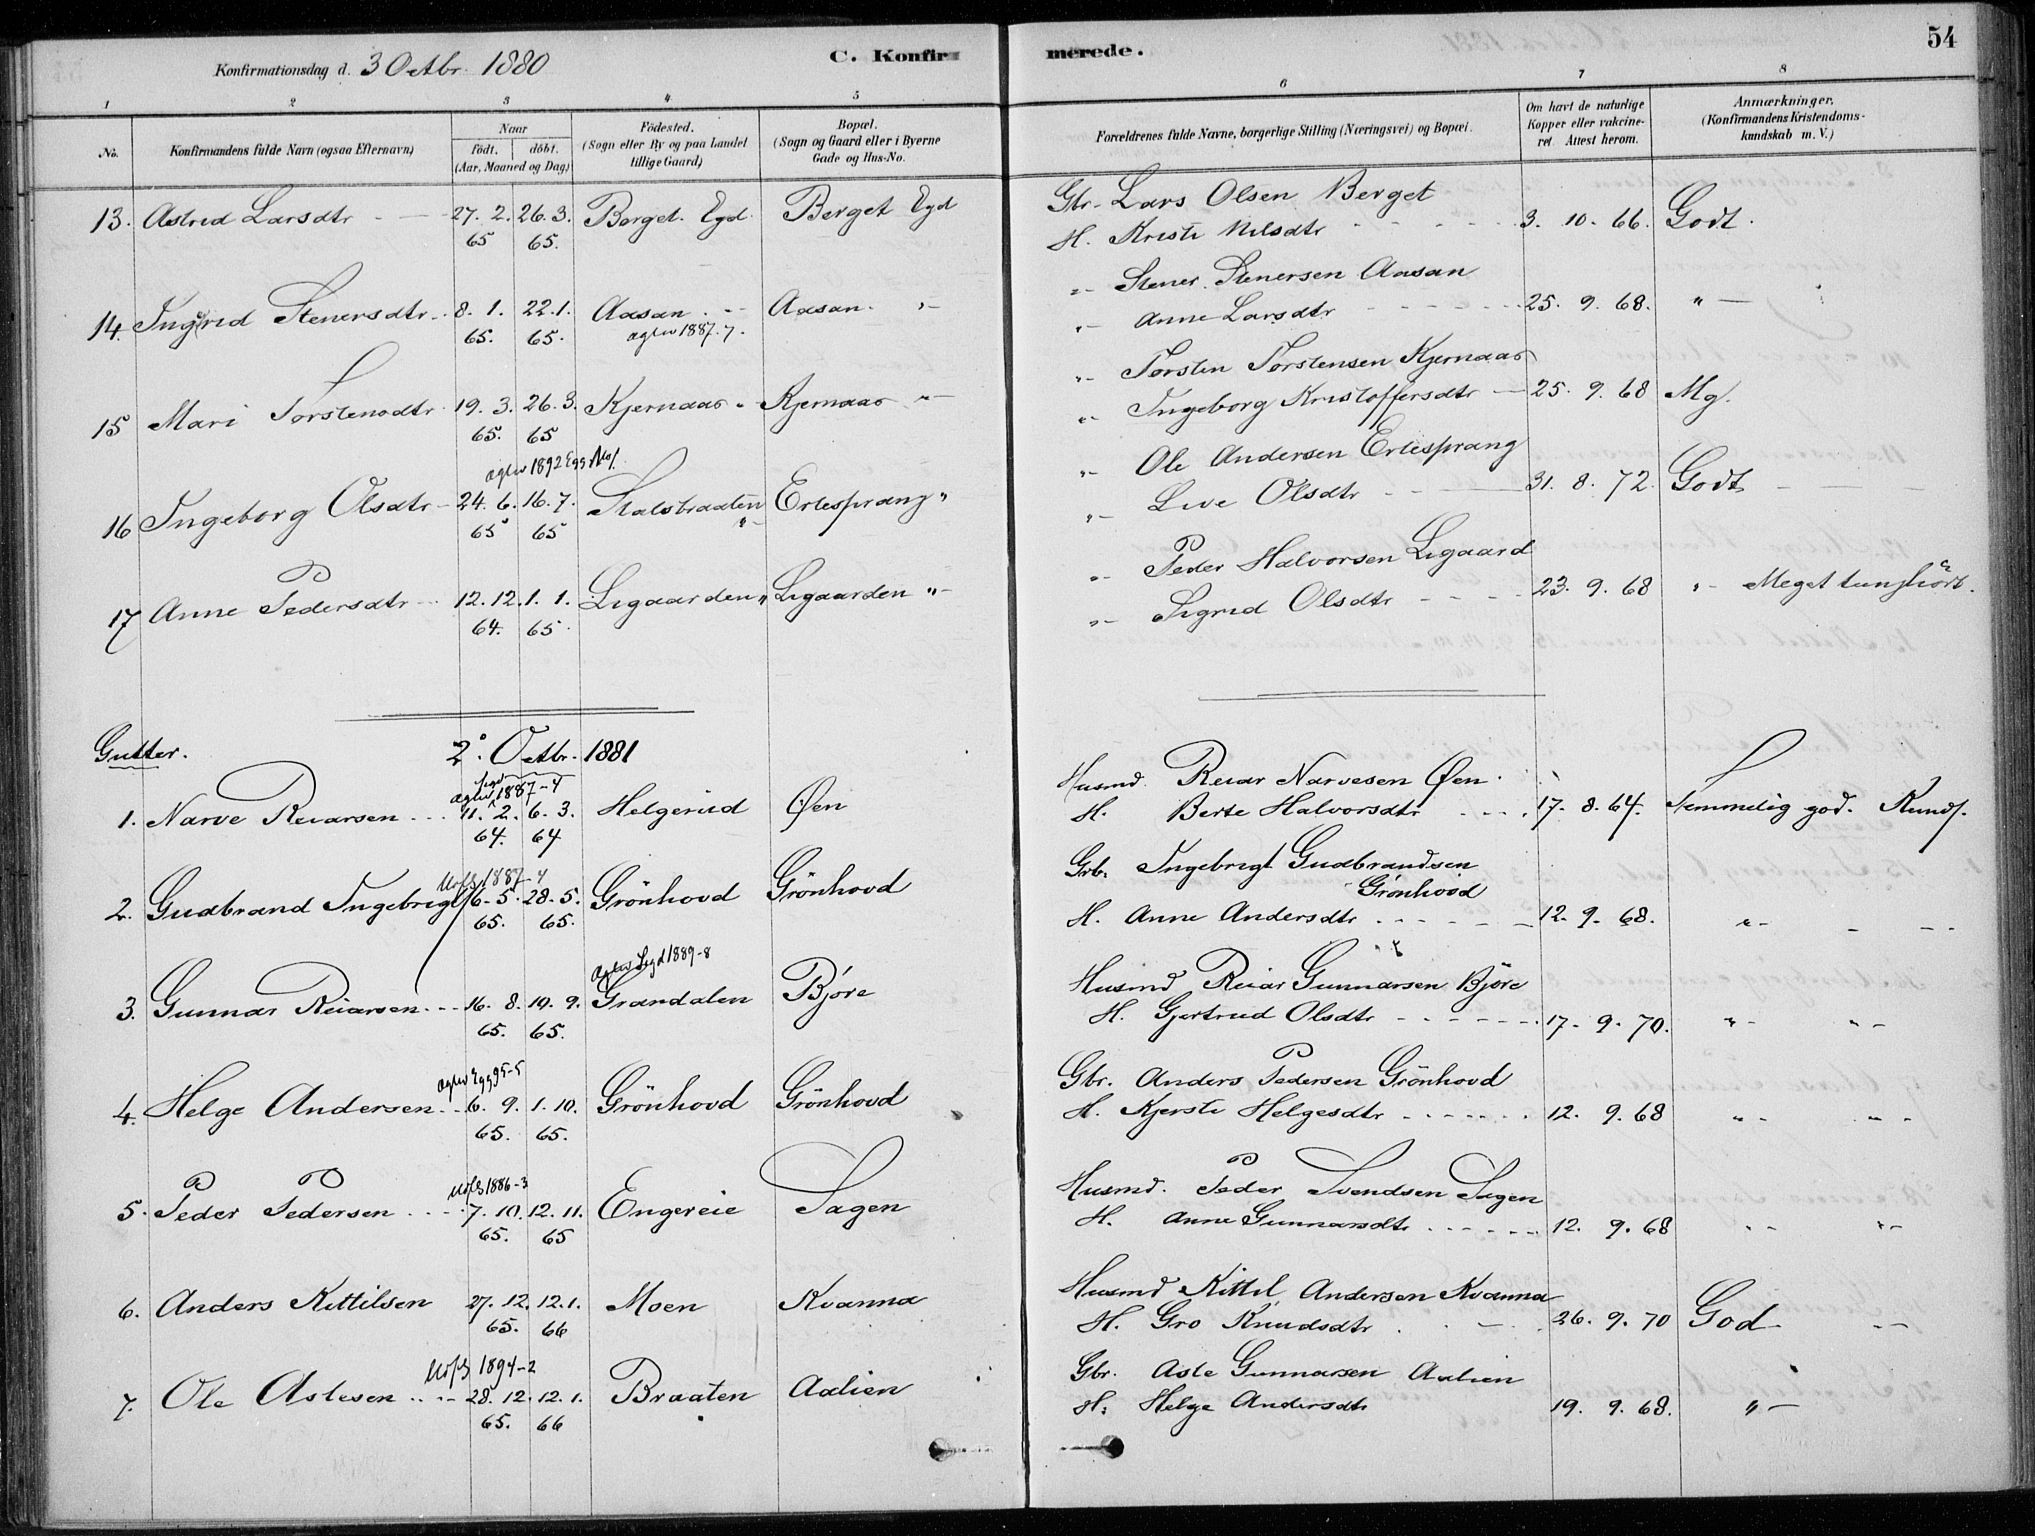 54
Konfirmationsdag d. 3 Octbr. 1880
C. Konfirmerede.
1 2 3 4 5 6 7 8
No.
Konfirmandens fulde Navn (ogsaa Efternavn)
Naar
født. døbt.
(Aar, Maaned og Dag)
Fødested.
(Sogn eller By og paa Landet
tillige Gaard)
Bopæl.
(Sogn og Gaard eller i Byerne
Gade og Hus-No.
Forældrenes fulde Navne, borgerlige Stilling (Næringsvei) og Bopæl.
Om havt de naturlige
Kopper eller vakcine-
ret. Attest herom.
Anmærkninger.
(Konfirmandens Kristendoms-
kundskab m. V.)
13. Astrid Larsdtr 27. 2. 65 26. 3. 65. Berget Egd. Berget Egd Gbr. Lars Olsen Berget
H. Kristi Nilsdtr 3. 10. 66. Godt.
14. Ingrid Stenersdtr. 8. 1. 65. 22. 1. 65. Aasan Aasan " Stener Stenersen Aasan
" Anne Larsdtr 25. 9. 68. "
1887. 7.
15 Mari Torstensdtr 19. 3. 65. 26. 3. 65 Kjernaas Kjernaas " Torsten Torstensen Kjernaas
" Ingeborg Kristoffersdtr 25. 9. 68 Mg.
1892
16 Ingeborg Olsdtr 24. 6. 65 16. 7. 65 Stalsbraaten " Ertesprang " " Ole Andersen Ertesprang
" Live Olsdtr 31. 8. 72. Godt
17 Anne Pedersdtr 12. 12. 64. 1. 1. 65. Ligaarden " Ligaarden " " Peder Halvorsen Ligaard
" Sigrid Olsdtr 23. 9. 68 " Meget tunghørt.
Gutter. 2. Octbr. 1881
1887-4
1. Narve Reiarsen 11. 2. 64. 6. 3. 64 Helgerud Øen Husmd. Reiar Narvesen Øen
H. Berte Halvorsdtr 17. 8. 64. Temmelig god. Kundsk.
1887-4
2. Gudbrand Ingebrigts 16. 5. 65. 28. 5. 65. Grönhovd Grönhovd Grb. Ingebrigt Gudbrandsen
Grönhovd
H. Anne Andersdtr 12. 9. 68. "
1889-8
3. Gunnar Reiarsen 16. 8. 65. 10. 9. 65. Grandalen Björe Husmd Reiar Gunnarsen Björe
H. Gjertrud Olsdtr 17. 9. 70. " "
95-5
4. Helge Andersen 6. 9. 65. 1. 10. 65. Grönhovd Grönhovd Gbr. Anders Pedersen Grönhovd
H. Kjersti Helgesdtr 12. 9. 68 " "
1886-3
5. Peder Pedersen 7. 10. 65. 12. 11. 65 Engereie Sagen Husmd. Peder Svendsen Sagen
H. Anne Gunnarsdtr 12. 9. 68 " "
6. Anders Kittilsen 27. 12. 65. 12. 1. 66 Moen Kvanna Husmd Kittil Andersen Kvanna
H. Gro Knudsdtr 26. 9. 70 God "
1894-2
7. Ole Astesen 28. 12. 65. 12. 1. 66 Braaten Aalien Gbr. Aste Gunnarsen Aalien
H. Helge Andersdtr 19. 9. 68. "